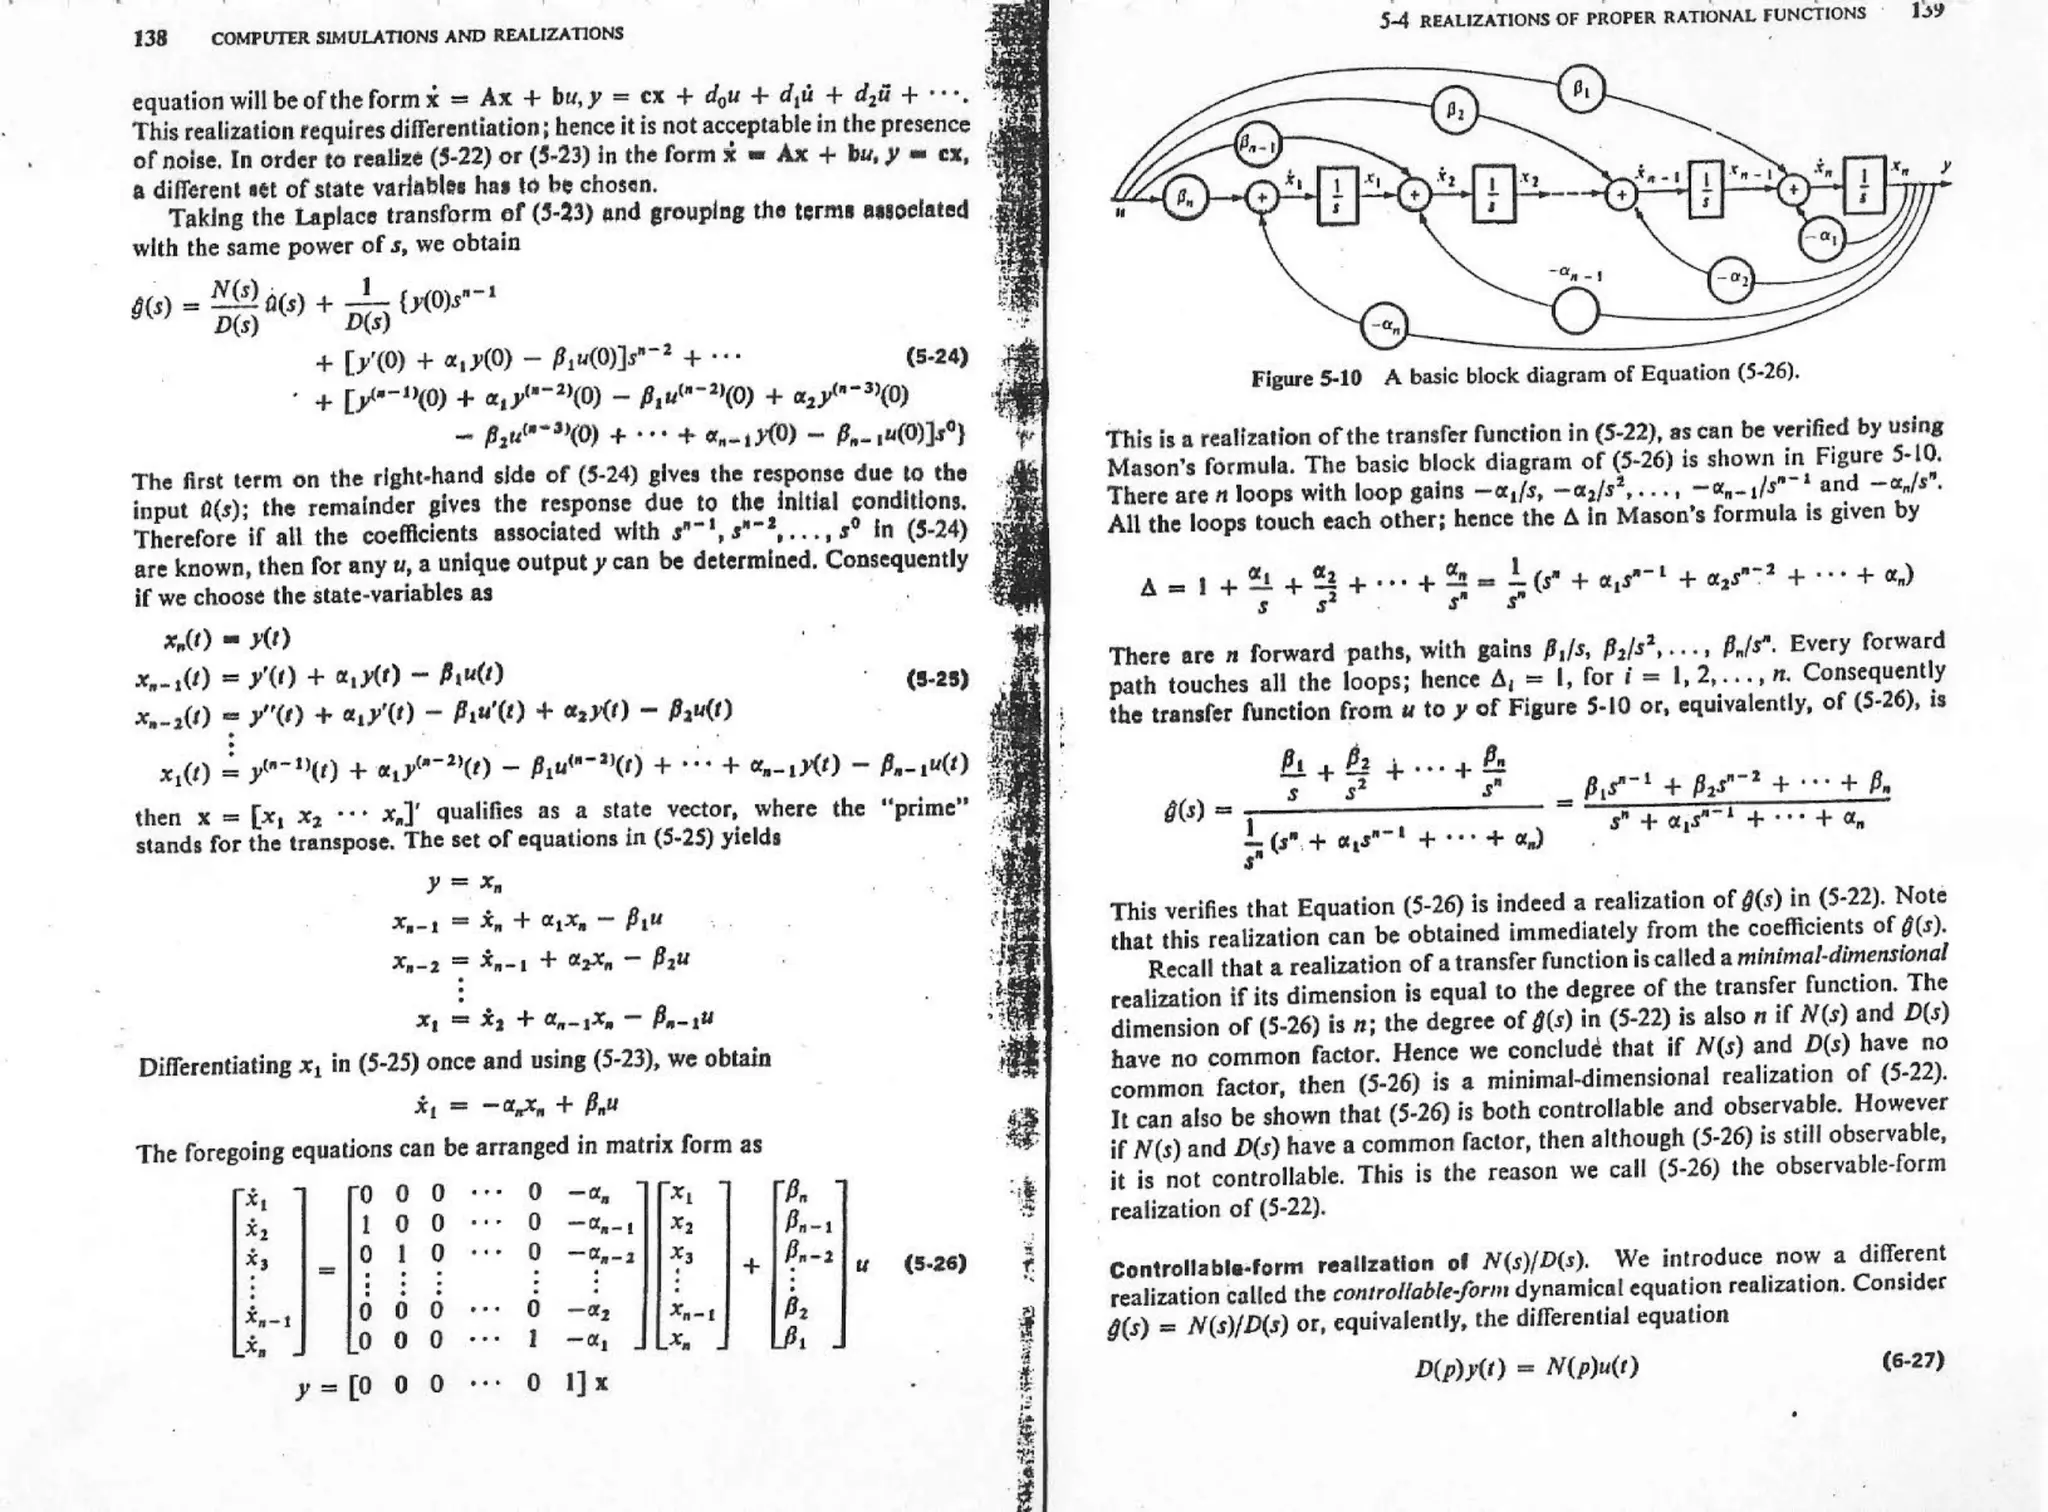 138 COMPUTER SIMULATIONS AND REALIZATIONS
equation will be of the form ẋ = Ax + bu, y = cx + d₀u + d₁u̇ + d₂ü + ···.
This realization requires differentiation; hence it is not acceptable in the presence
of noise. In order to realize (5-22) or (5-23) in the form ẋ = Ax + bu, y = cx,
a different set of state variables has to be chosen.
Taking the Laplace transform of (5-23) and grouping the terms associated
with the same power of s, we obtain
ŷ(s) = N(s)/D(s) û(s) + 1/D(s) {y(0)sⁿ⁻¹
+ [y′(0) + α₁y(0) − β₁u(0)]sⁿ⁻² + ··· (5-24)
+ [y⁽ⁿ⁻¹⁾(0) + α₁y⁽ⁿ⁻²⁾(0) − β₁u⁽ⁿ⁻²⁾(0) + α₂y⁽ⁿ⁻³⁾(0)
− β₂u⁽ⁿ⁻³⁾(0) + ··· + αₙ₋₁y(0) − βₙ₋₁u(0)]s⁰}
The first term on the right-hand side of (5-24) gives the response due to the
input û(s); the remainder gives the response due to the initial conditions.
Therefore if all the coefficients associated with sⁿ⁻¹, sⁿ⁻², . . . , s⁰ in (5-24)
are known, then for any u, a unique output y can be determined. Consequently
if we choose the state-variables as
xₙ(t) = y(t)
xₙ₋₁(t) = y′(t) + α₁y(t) − β₁u(t) (5-25)
xₙ₋₂(t) = y″(t) + α₁y′(t) − β₁u′(t) + α₂y(t) − β₂u(t)
⋮
x₁(t) = y⁽ⁿ⁻¹⁾(t) + α₁y⁽ⁿ⁻²⁾(t) − β₁u⁽ⁿ⁻²⁾(t) + ··· + αₙ₋₁y(t) − βₙ₋₁u(t)
then x = [x₁ x₂ ··· xₙ]′ qualifies as a state vector, where the "prime"
stands for the transpose. The set of equations in (5-25) yields
y = xₙ
xₙ₋₁ = ẋₙ + α₁xₙ − β₁u
xₙ₋₂ = ẋₙ₋₁ + α₂xₙ − β₂u
⋮
x₁ = ẋ₂ + αₙ₋₁xₙ − βₙ₋₁u
Differentiating x₁ in (5-25) once and using (5-23), we obtain
ẋ₁ = −αₙxₙ + βₙu
The foregoing equations can be arranged in matrix form as
[ẋ₁] [0 0 0 ··· 0 −αₙ] [x₁] [βₙ]
[ẋ₂] [1 0 0 ··· 0 −αₙ₋₁] [x₂] [βₙ₋₁]
[ẋ₃] = [0 1 0 ··· 0 −αₙ₋₂] [x₃] + [βₙ₋₂] u (5-26)
⋮ ⋮ ⋮ ⋮ ⋮ ⋮ ⋮ ⋮
[ẋₙ₋₁] [0 0 0 ··· 0 −α₂] [xₙ₋₁] [β₂]
[ẋₙ] [0 0 0 ··· 1 −α₁] [xₙ] [β₁]
y = [0 0 0 ··· 0 1] x
5-4 REALIZATIONS OF PROPER RATIONAL FUNCTIONS 139
β₁
β₂
βₙ₋₁
u βₙ + ẋ₁ 1/s x₁ + ẋ₂ 1/s x₂ + ẋₙ₋₁ 1/s xₙ₋₁ + ẋₙ 1/s xₙ y
−α₁
−α₂
−αₙ₋₁
−αₙ
Figure 5-10 A basic block diagram of Equation (5-26).
This is a realization of the transfer function in (5-22), as can be verified by using
Mason's formula. The basic block diagram of (5-26) is shown in Figure 5-10.
There are n loops with loop gains −α₁/s, −α₂/s², . . . , −αₙ₋₁/sⁿ⁻¹ and −αₙ/sⁿ.
All the loops touch each other; hence the Δ in Mason's formula is given by
Δ = 1 + α₁/s + α₂/s² + ··· + αₙ/sⁿ = 1/sⁿ (sⁿ + α₁sⁿ⁻¹ + α₂sⁿ⁻² + ··· + αₙ)
There are n forward paths, with gains β₁/s, β₂/s², . . . , βₙ/sⁿ. Every forward
path touches all the loops; hence Δᵢ = 1, for i = 1, 2, . . . , n. Consequently
the transfer function from u to y of Figure 5-10 or, equivalently, of (5-26), is
ĝ(s) = (β₁/s + β₂/s² + ··· + βₙ/sⁿ) / (1/sⁿ (sⁿ + α₁sⁿ⁻¹ + ··· + αₙ)) = (β₁sⁿ⁻¹ + β₂sⁿ⁻² + ··· + βₙ) / (sⁿ + α₁sⁿ⁻¹ + ··· + αₙ)
This verifies that Equation (5-26) is indeed a realization of ĝ(s) in (5-22). Note
that this realization can be obtained immediately from the coefficients of ĝ(s).
Recall that a realization of a transfer function is called a minimal-dimensional
realization if its dimension is equal to the degree of the transfer function. The
dimension of (5-26) is n; the degree of ĝ(s) in (5-22) is also n if N(s) and D(s)
have no common factor. Hence we conclude that if N(s) and D(s) have no
common factor, then (5-26) is a minimal-dimensional realization of (5-22).
It can also be shown that (5-26) is both controllable and observable. However
if N(s) and D(s) have a common factor, then although (5-26) is still observable,
it is not controllable. This is the reason we call (5-26) the observable-form
realization of (5-22).
Controllable-form realization of N(s)/D(s). We introduce now a different
realization called the controllable-form dynamical equation realization. Consider
ĝ(s) = N(s)/D(s) or, equivalently, the differential equation
D(p)y(t) = N(p)u(t) (6-27)